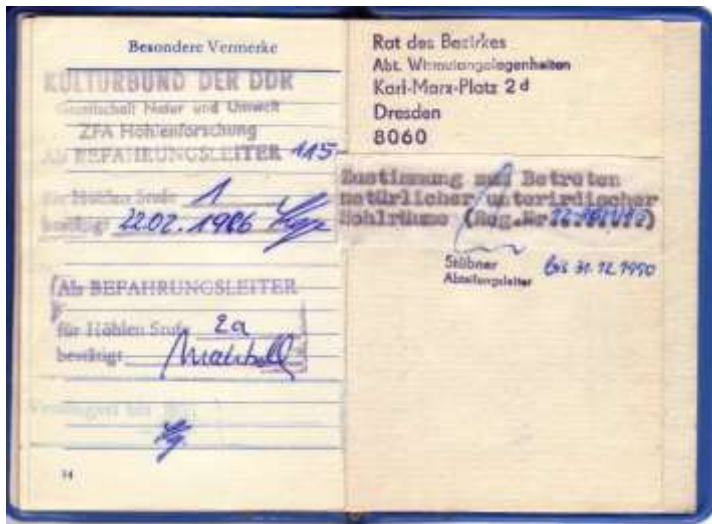 Besondere Vermerke
KULTURBUND DER DDR
Gesellschaft Natur und Umwelt
ZFA Höhlenforschung
Als BEFAHRUNGSLEITER 115-
für Höhlen Stufe 1
bestätigt 22.02.1986
Als BEFAHRUNGSLEITER
für Höhlen Stufe 2a
bestätigt
Verlängert bis
14
Rat des Bezirkes
Karl-Marx-Platz 2d
Dresden
8060
Zustimmung zum Betreten
natürlicher unterirdischer
Hohlräume (Reg.Nr.
Stübner
Abteilungsleiter
bis 31.12.1990